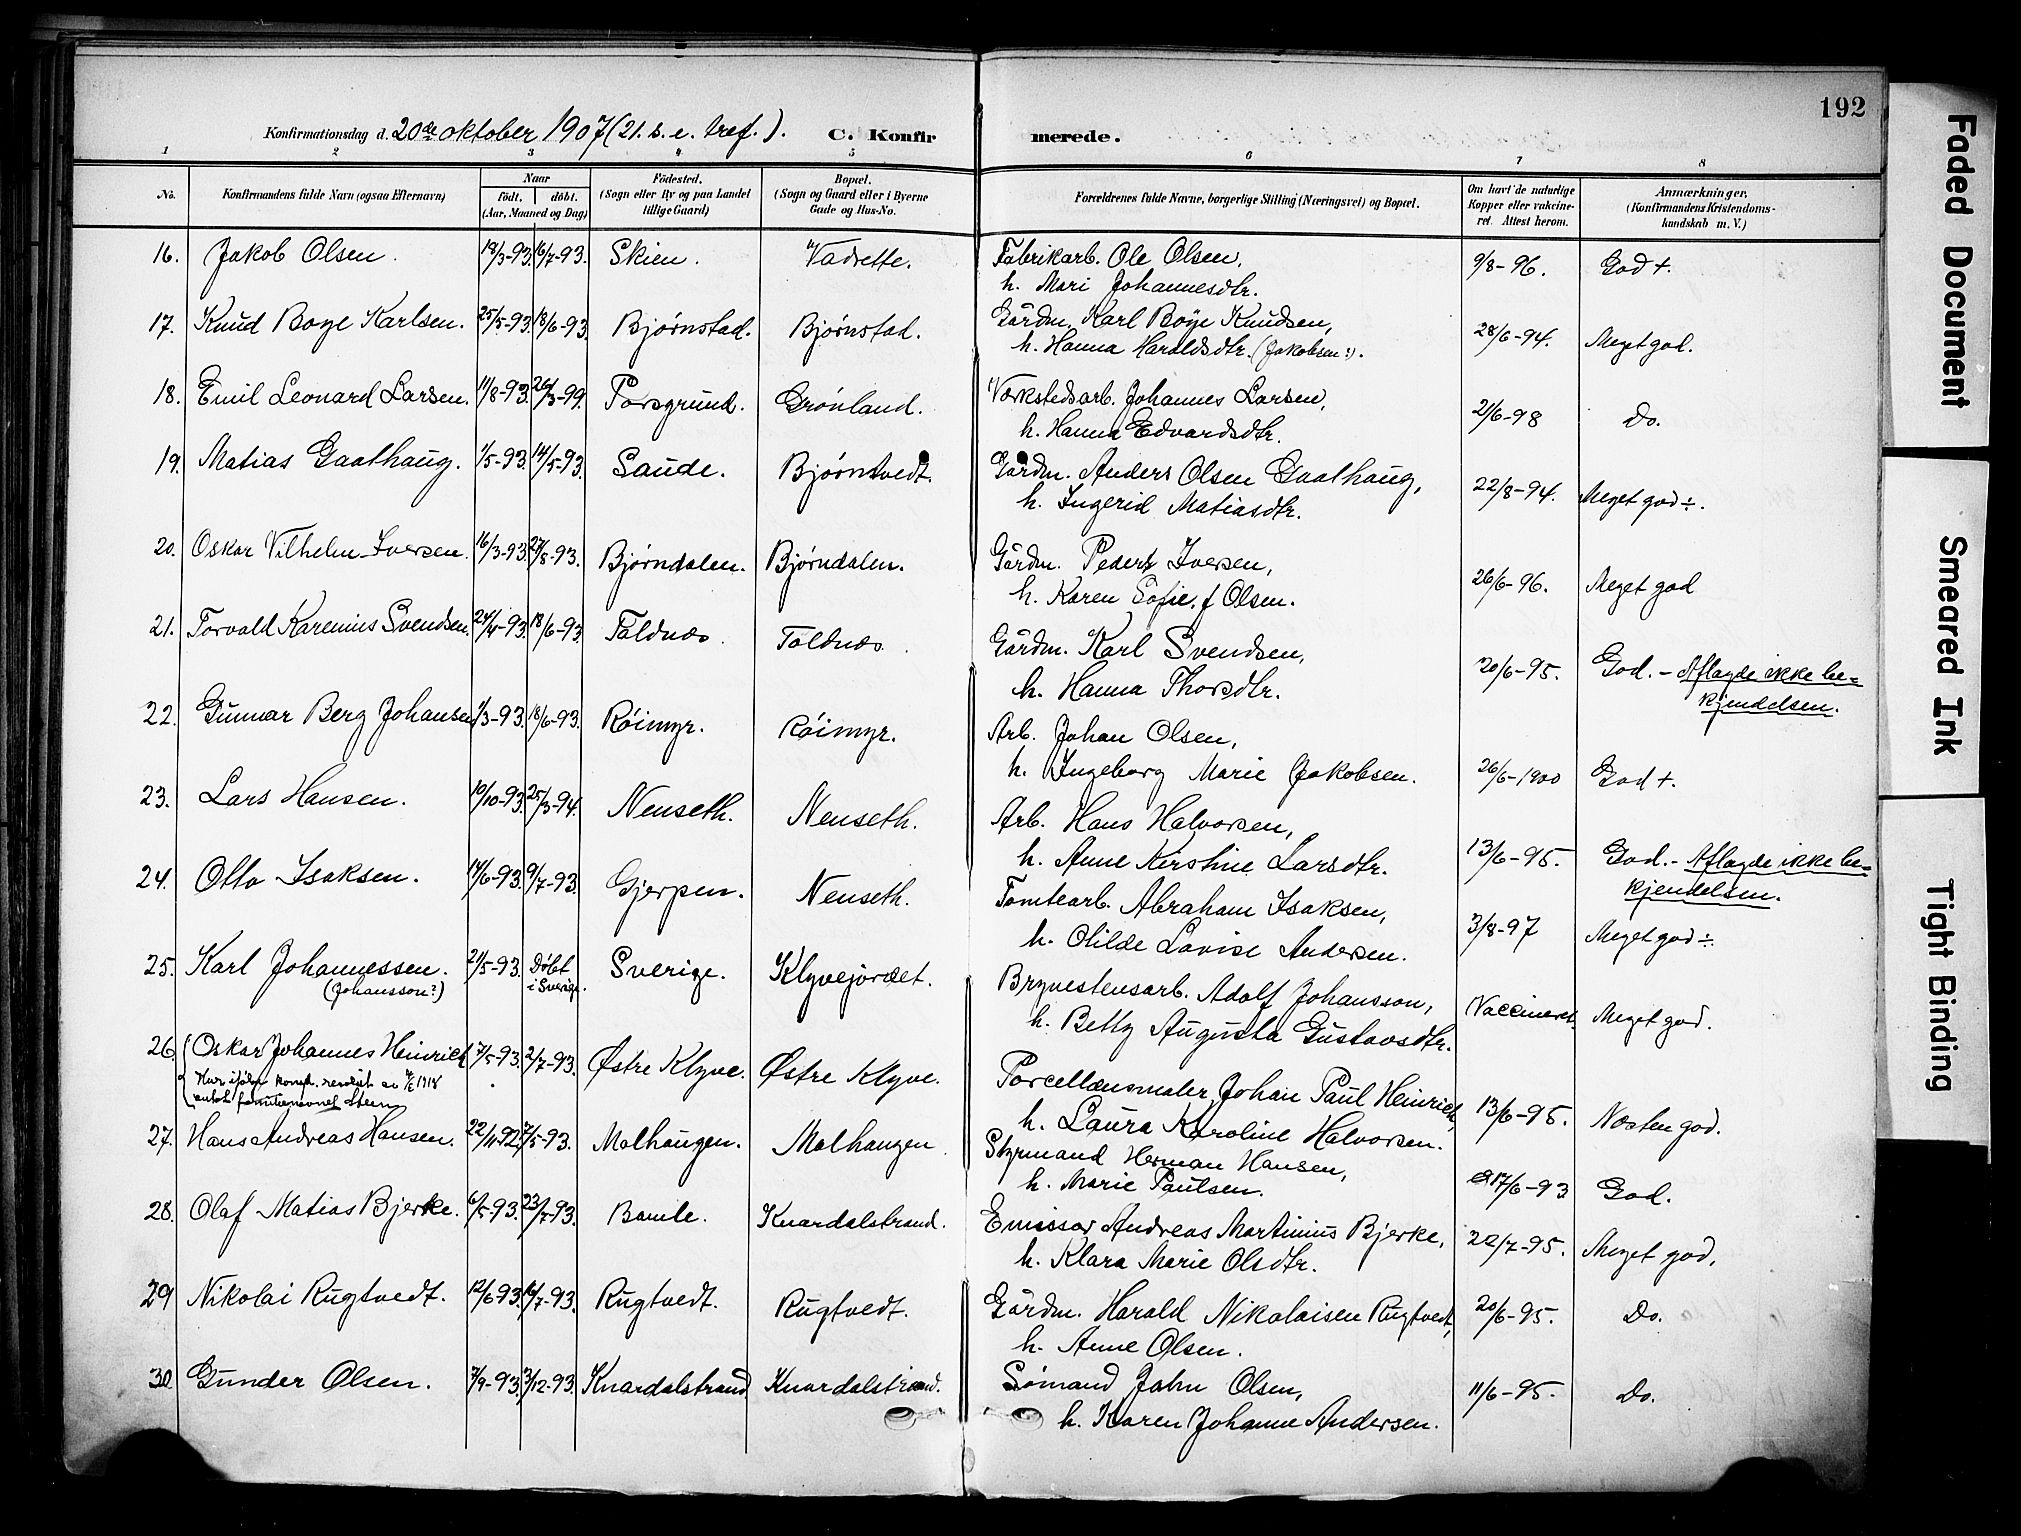 192
Konfirmationsdag d. 20de oktober 1907 (21. s. e. tref.). C. Konfirmerede.
1 2 3 4 5 6 7 8
No. Konfirmandens fulde Navn (ogsaa Efternavn) Naar født, døbt. (Aar, Maaned og Dag) Fødested. (Sogn eller By og paa Landet tillige Gaard) Bopæl. (Sogn og Gaard eller i Byerne Gade og Hus-No. Forældrenes fulde Navne, borgerlige Stilling (Næringsvei) og Bopæl. Om havt de naturlige Kopper eller vakcineret. Attest herom. Anmærkninger, (Konfirmandens Kristendomskundskab m. V.)
16. Jakob Olsen. 18/3-93. 16/7-93. Skien. Vadrette. Fabrikarb. Ole Olsen, 9/8-96. God +.
h. Mari Johannesdtr.
17. Knud Boye Karlsen. 25/5-93. 18/6-93. Bjørnstad. Bjørnstad. Gårdm. Karl Boye Knudsen, 28/6-94. Meget god.
h. Hanna Haraldsdtr. (Jakobsen?).
18. Emil Leonard Larsen. 11/8-93. 26/3-99. Porsgrund. Grønland. Værkstedsarb. Johannes Larsen, 21/6-98 Do.
h. Hanna Edvardsdtr.
19. Matias Gaathaug. 1/5-93. 14/5-93. Saude. Bjørntvedt. Gårdm. Anders Olsen Gaathaug, 22/8-94. Meget god ÷.
h. Ingerid Matiasdtr.
20. Oskar Vilhelm Iversen. 16/3-93. 27/8-93. Bjørndalen. Bjørndalen. Gårdm. Peder Iversen, 26/6-96. Meget god
h. Karen Sofie f Olsen.
21. Torvald Karenius Svendsen. 24/4-93. 18/6-93. Foldnæs. Toldnæs. Gårdm. Karl Svendsen, 20/6-95. God. - Aflagde ikke be-
h. Hanna Thorsdtr. kjendelsen.
22. Gunnar Berg Johansen 1/3-93. 18/6-93. Röimyr. Röimyr. Arb. Johan Olsen, 26/6-1900 God +.
h. Ingeborg Marie Jakobsen.
23. Lars Hansen. 10/10-93. 25/3-94. Nenseth. Nenseth. Arb. Hans Halvorsen, 13/6-95. God. - Aflagde ikke be-
h. Anne Kirstine Larsdtr. kjendelsen.
24. Otto Isaksen. 14/6-93. 9/7-93. Gjerpen. Nenseth. Tomtearb. Abraham Isaksen, 3/8-97 Meget god ÷.
h. Olilde Lovise Andersen.
25. Karl Johannessen. 21/5-93. Døbt i Sverige. Sverige. Klyvejordet. Bryvestensarb. Adolf Johansson, Vaccineret. Meget god.
(Johansson?) h. Betty Augusta Gustavsdtr.
26. Oskar Johannes Heinrich 7/5-93. 2/7-93. Østre Klyve. Østre Klyve. Porcellænsmaler Johan Paul Heinrich, 13/6-95. Næsten god.
Har ifølge kongl. resolut. av 1918
antat familienavnet Steen
h. Laura Karoline Halvorsen.
27. Hans Andreas Hansen. 22/11-92. 7/5-93. Malhaugen. Malhaugen. Styrmand Herman Hansen, 17/6-93 God.
h. Marie Paulsen.
28. Olaf Matias Bjerke. 6/5-93. 23/7-93. Bamle. Knardalstrand. Emissær Andreas Martinius Bjerke, 22/7-95. Meget god.
h. Klara Marie Olsdtr.
29 Nikolai Rugtvedt. 12/6-93. 16/7-93. Rugtvedt. Rugtvedt. Gårdm. Harald Nikolaisen Rugtvedt, 20/6-95. Do.
h. Anne Olsen.
30. Gunder Olsen. 7/9-93. 3/12-93. Knardalstrand Knardalstrand. Sömand John Olsen, 11/6-95. Do.
h. Karen Johanne Andersen.
Faded Document
Smeared Ink
Tight Binding